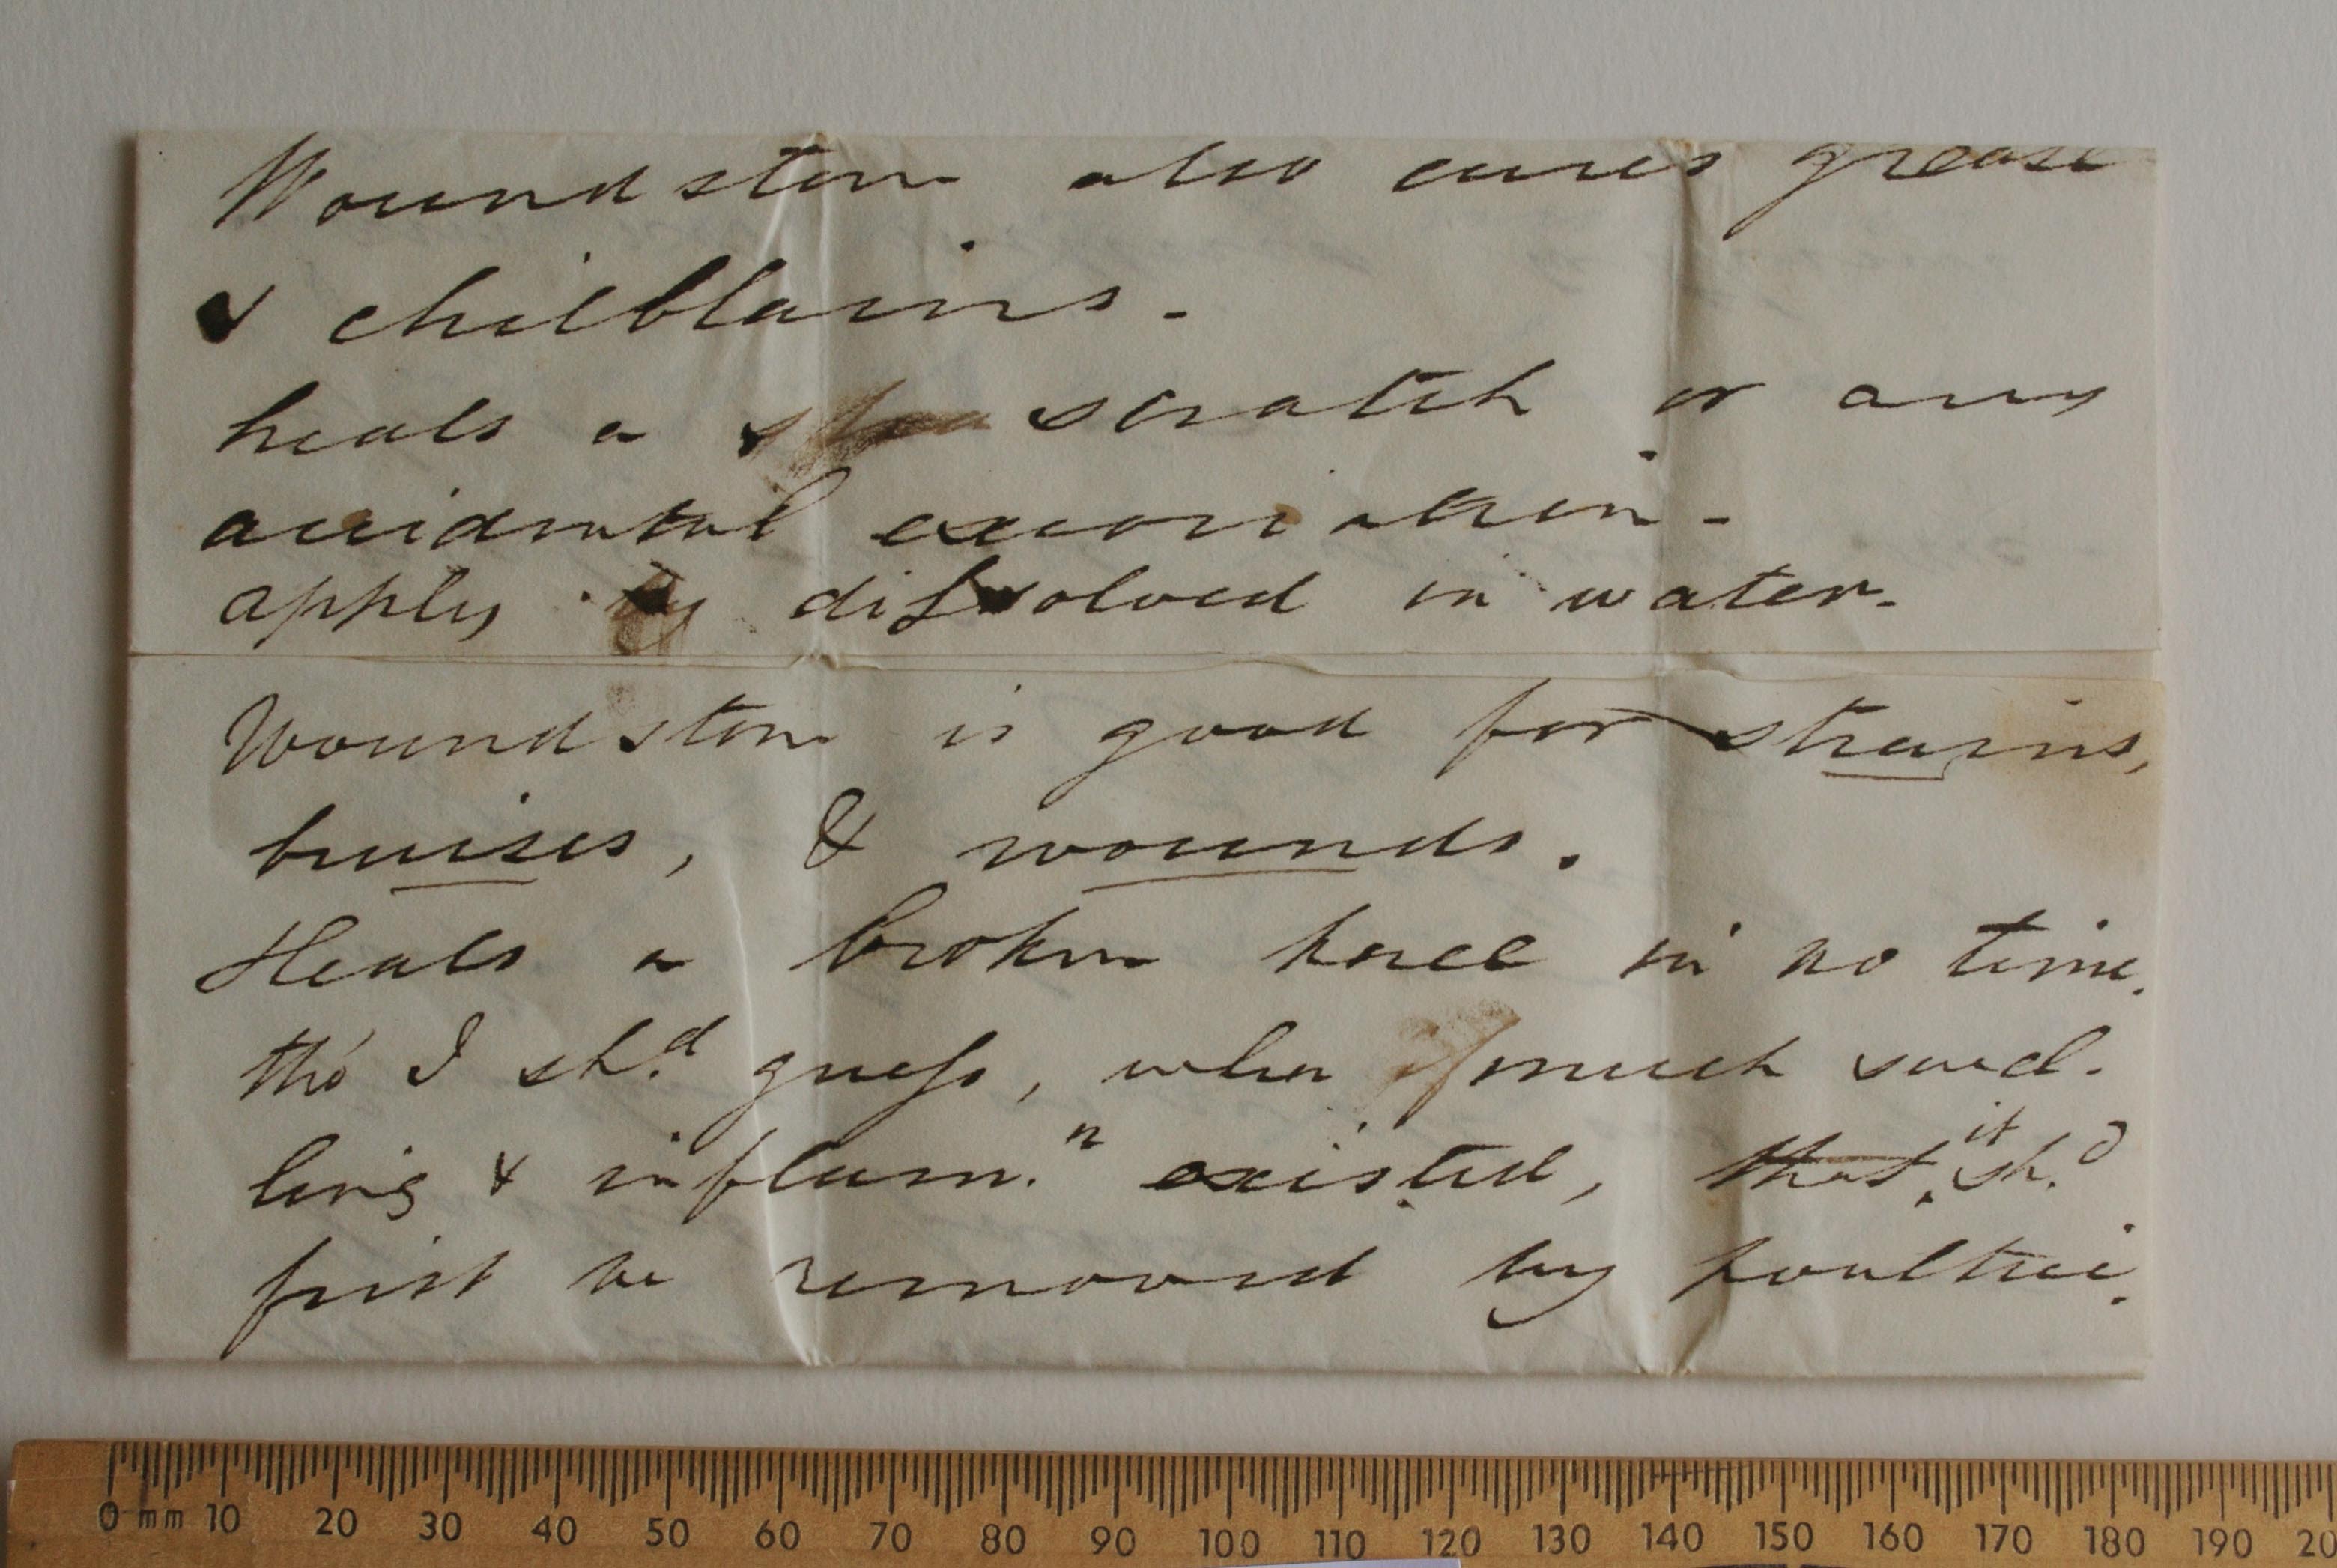 Woundstone also cures grease
& chilblains.
heals a scratch or any
accidental excoriation -
apply dissolved in water.
Woundstone is good for strains,
bruises, & wounds.
Heals a broken knee in no time.
tho' I sh.d guess, when much swel-
ling & inflam.n existed, that it sh.d
first be removed by poultice.
0 mm 10 20 30 40 50 60 70 80 90 100 110 120 130 140 150 160 170 180 190 20